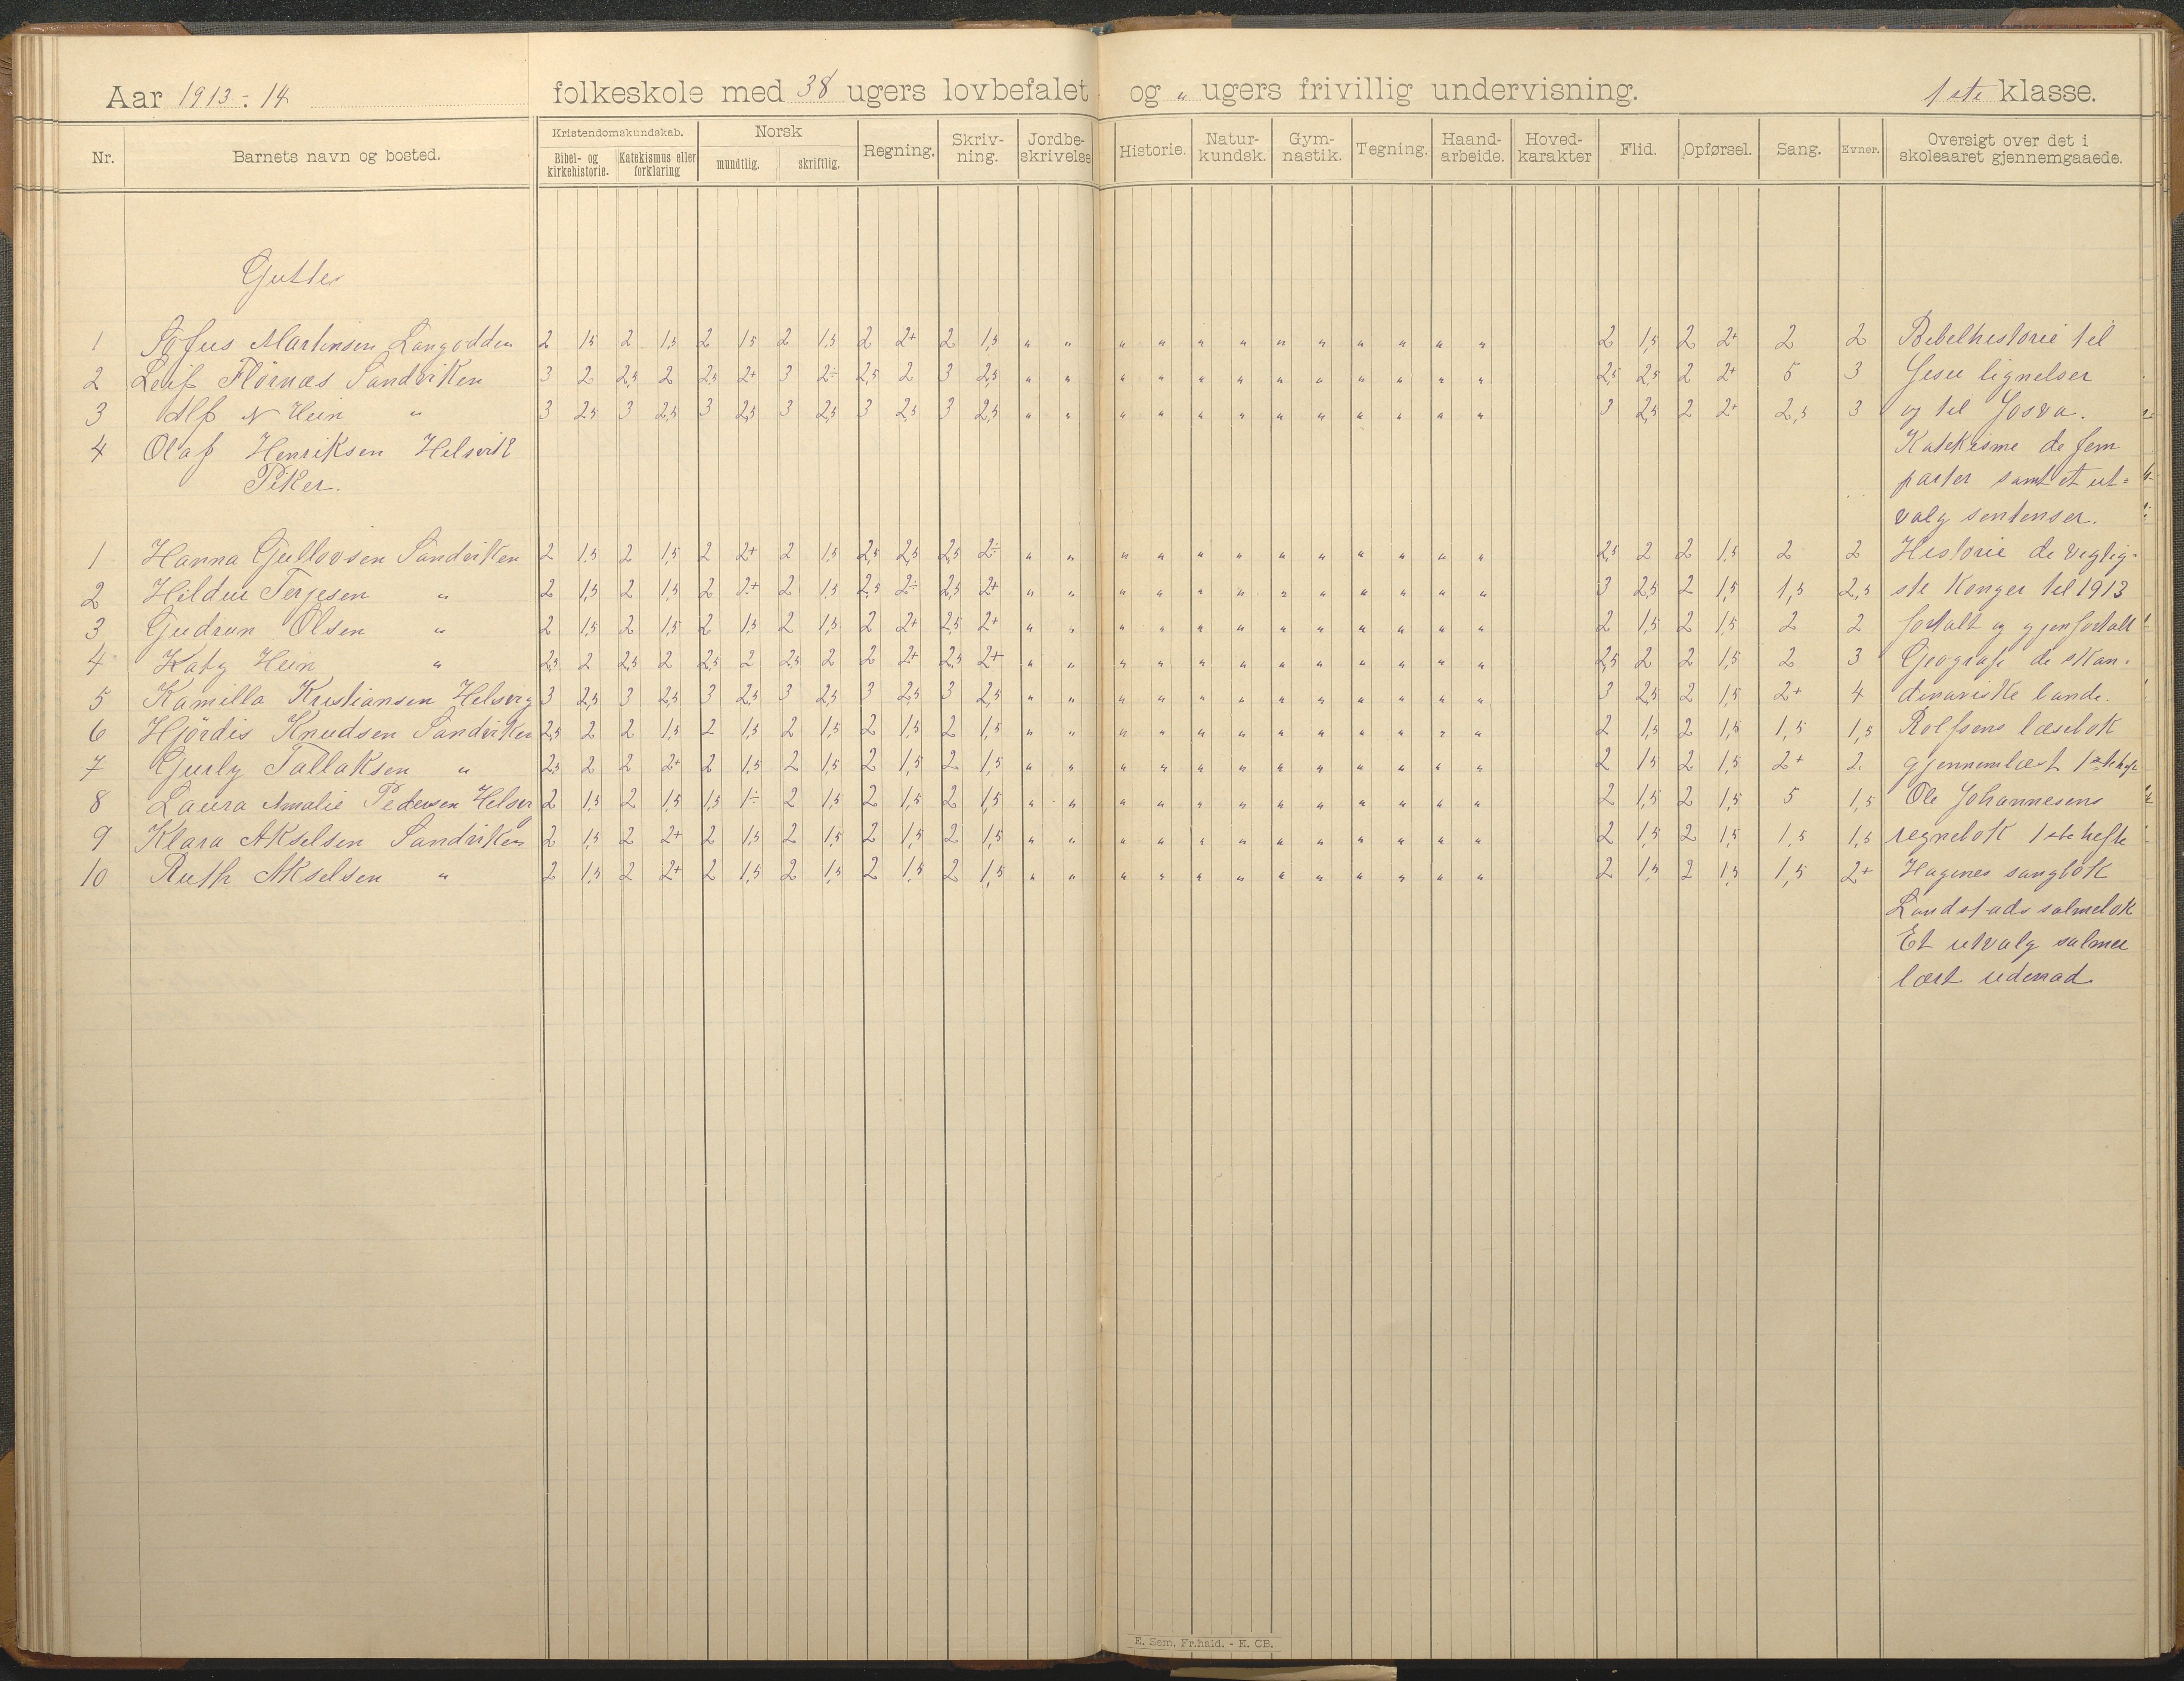 Aar 1913-14 folkeskole med 38 ugers lovbefalet og " ugers frivillig undervisning. 1ste klasse.
Nr. Barnets navn og bosted. Kristendomskundskab. Bibel- og kirkehistorie. Katekismus eller forklaring Norsk mundtlig. skriftlig. Regning. Skriv-ning. Jordbe-skrivelse Historie. Natur-kundsk. Gym-nastik. Tegning. Haand-arbeide. Hoved-karakter Flid. Opførsel. Sang. Evner. Oversigt over det i skoleaaret gjennemgaaede.
Gutter
1 Sofus Martinsen Langodden 2 1,5 2 1,5 2 1,5 2 1,5 2 2+ 2 1,5 " " " " " " " " " " " " 2 1,5 2 2+ 2 2 Bibelhistorie til
2 Leif Flørnæs Sandviken 3 2 2,5 2 2,5 2+ 3 2÷ 2,5 2 3 2,5 " " " " " " " " " " " " 2,5 2,5 2 2+ 5 3 Jesu lignelser
3 Alf N Hein " 3 2,5 3 2,5 3 2,5 3 2,5 3 2,5 3 2,5 " " " " " " " " " " " " 3 2,5 2 2+ 2,5 3 og til Josva.
4 Olaf Henriksen Helsvik Katekisme de fem
Piker. parter samt et ut-
valg sentenser.
1 Hanna Gullovsen Sandviken 2 1,5 2 1,5 2 2+ 2 1,5 2,5 2,5 2,5 2÷ " " " " " " " " " " " " 2,5 2 2 1,5 2 2 Historie de vigtig-
2 Hildur Terjesen " 2 1,5 2 1,5 2 2+ 2 1,5 2,5 2÷ 2,5 2+ " " " " " " " " " " " " 3 2,5 2 1,5 1,5 2,5 ste Konger til 1913
3 Gudrun Olsen " 2 1,5 2 1,5 2 1,5 2 1,5 2 2+ 2,5 2+ " " " " " " " " " " " " 2 1,5 2 1,5 2 2 fortalt og gjenfortalt
4 Katy Hein " 2,5 2 2,5 2 2,5 2 2,5 2 2 2+ 2,5 2+ " " " " " " " " " " " " 2,5 2 2 1,5 2 3 Geografi de skan-
5 Kamilla Kristiansen Helsvig 3 2,5 3 2,5 3 2,5 3 2,5 3 2,5 3 2,5 " " " " " " " " " " " " 3 2,5 2 1,5 2+ 4 dinaviske lande.
6 Hjördis Knudsen Sandviken 2,5 2 2 1,5 2 1,5 2 1,5 2 1,5 2 1,5 " " " " " " " " " " " " 2 1,5 2 1,5 1,5 1,5 Rolfsens læsebok
7 Gurly Tallaksen " 2,5 2 2 2+ 2 1,5 2 1,5 2 1,5 2 1,5 " " " " " " " " " " " " 2 1,5 2 1,5 2+ 2 gjennemlæst 1ste
8 Laura Amalie Pedersen Helsv 2 1,5 2 1,5 1,5 1÷ 2 1,5 2 1,5 2 1,5 " " " " " " " " " " " " 2 1,5 2 1,5 5 1,5 Ole Johannesens
9 Klara Akselsen Sandviken 2 1,5 2 2+ 2 1,5 2 1,5 2 1,5 2 1,5 " " " " " " " " " " " " 2 1,5 2 1,5 1,5 1,5 regnebok 1ste hefte
10 Ruth Akselsen " 2 1,5 2 2+ 2 1,5 2 1,5 2 1,5 2 1,5 " " " " " " " " " " " " 2 1,5 2 1,5 1,5 2+ Hagenes sangbok
Landstads salmebok
Et utvalg salmer
lært udenad
E. Sem, Fr.hald. - E. CB.